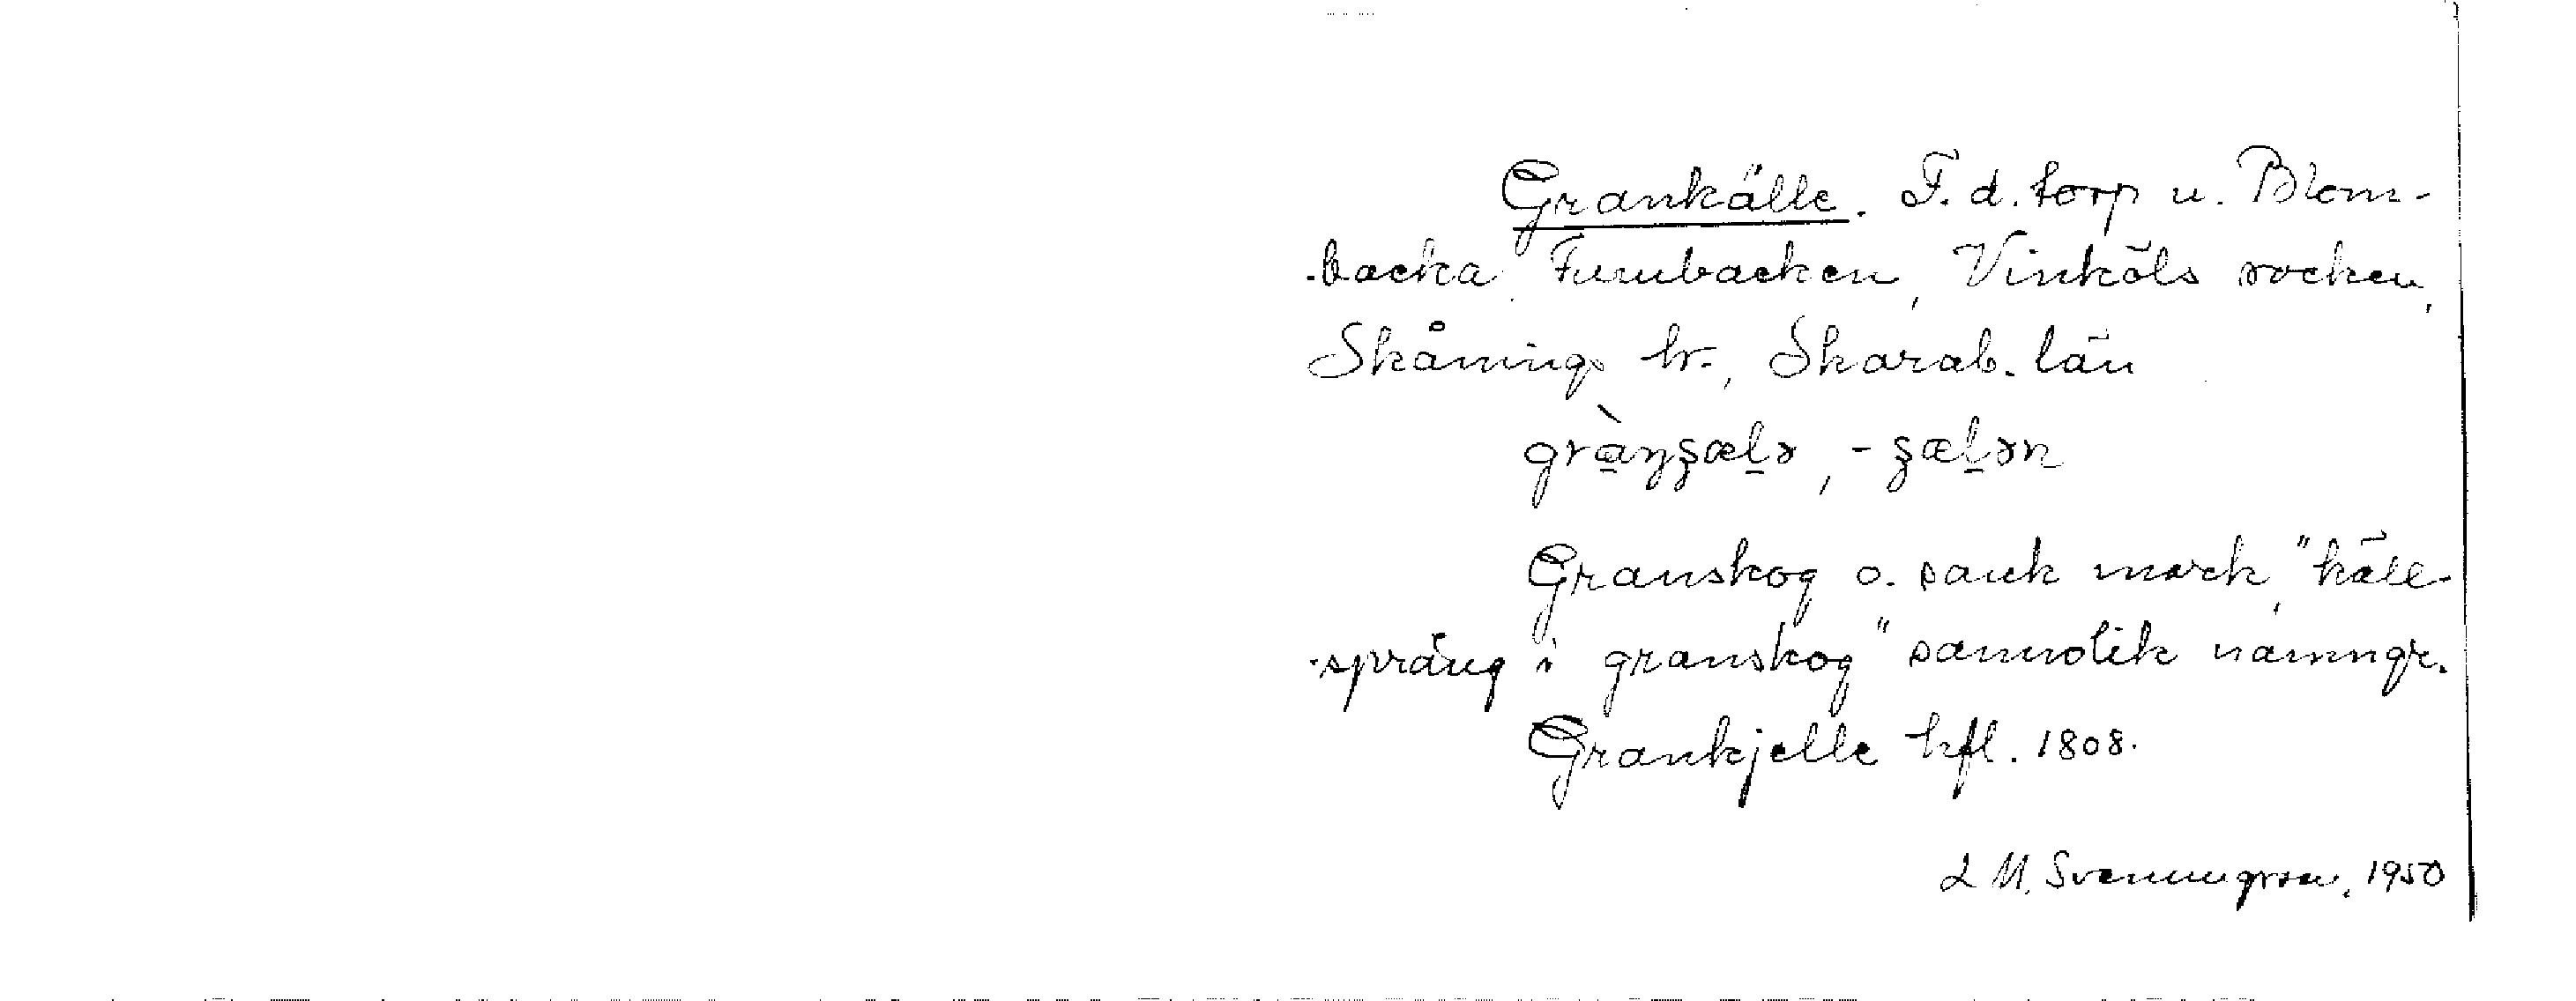 Grankälle. F.d. torp u. Blom-
backa Furubacken, Vinköls socken,
Skånings hr., Skarab. län
grànʒælə, -ʒælən
Granskog o. sank mark, "käll-
språng i granskog" sannolik namngr.
Grankjelle hfl. 1808.
L M. Svenungsson, 1950